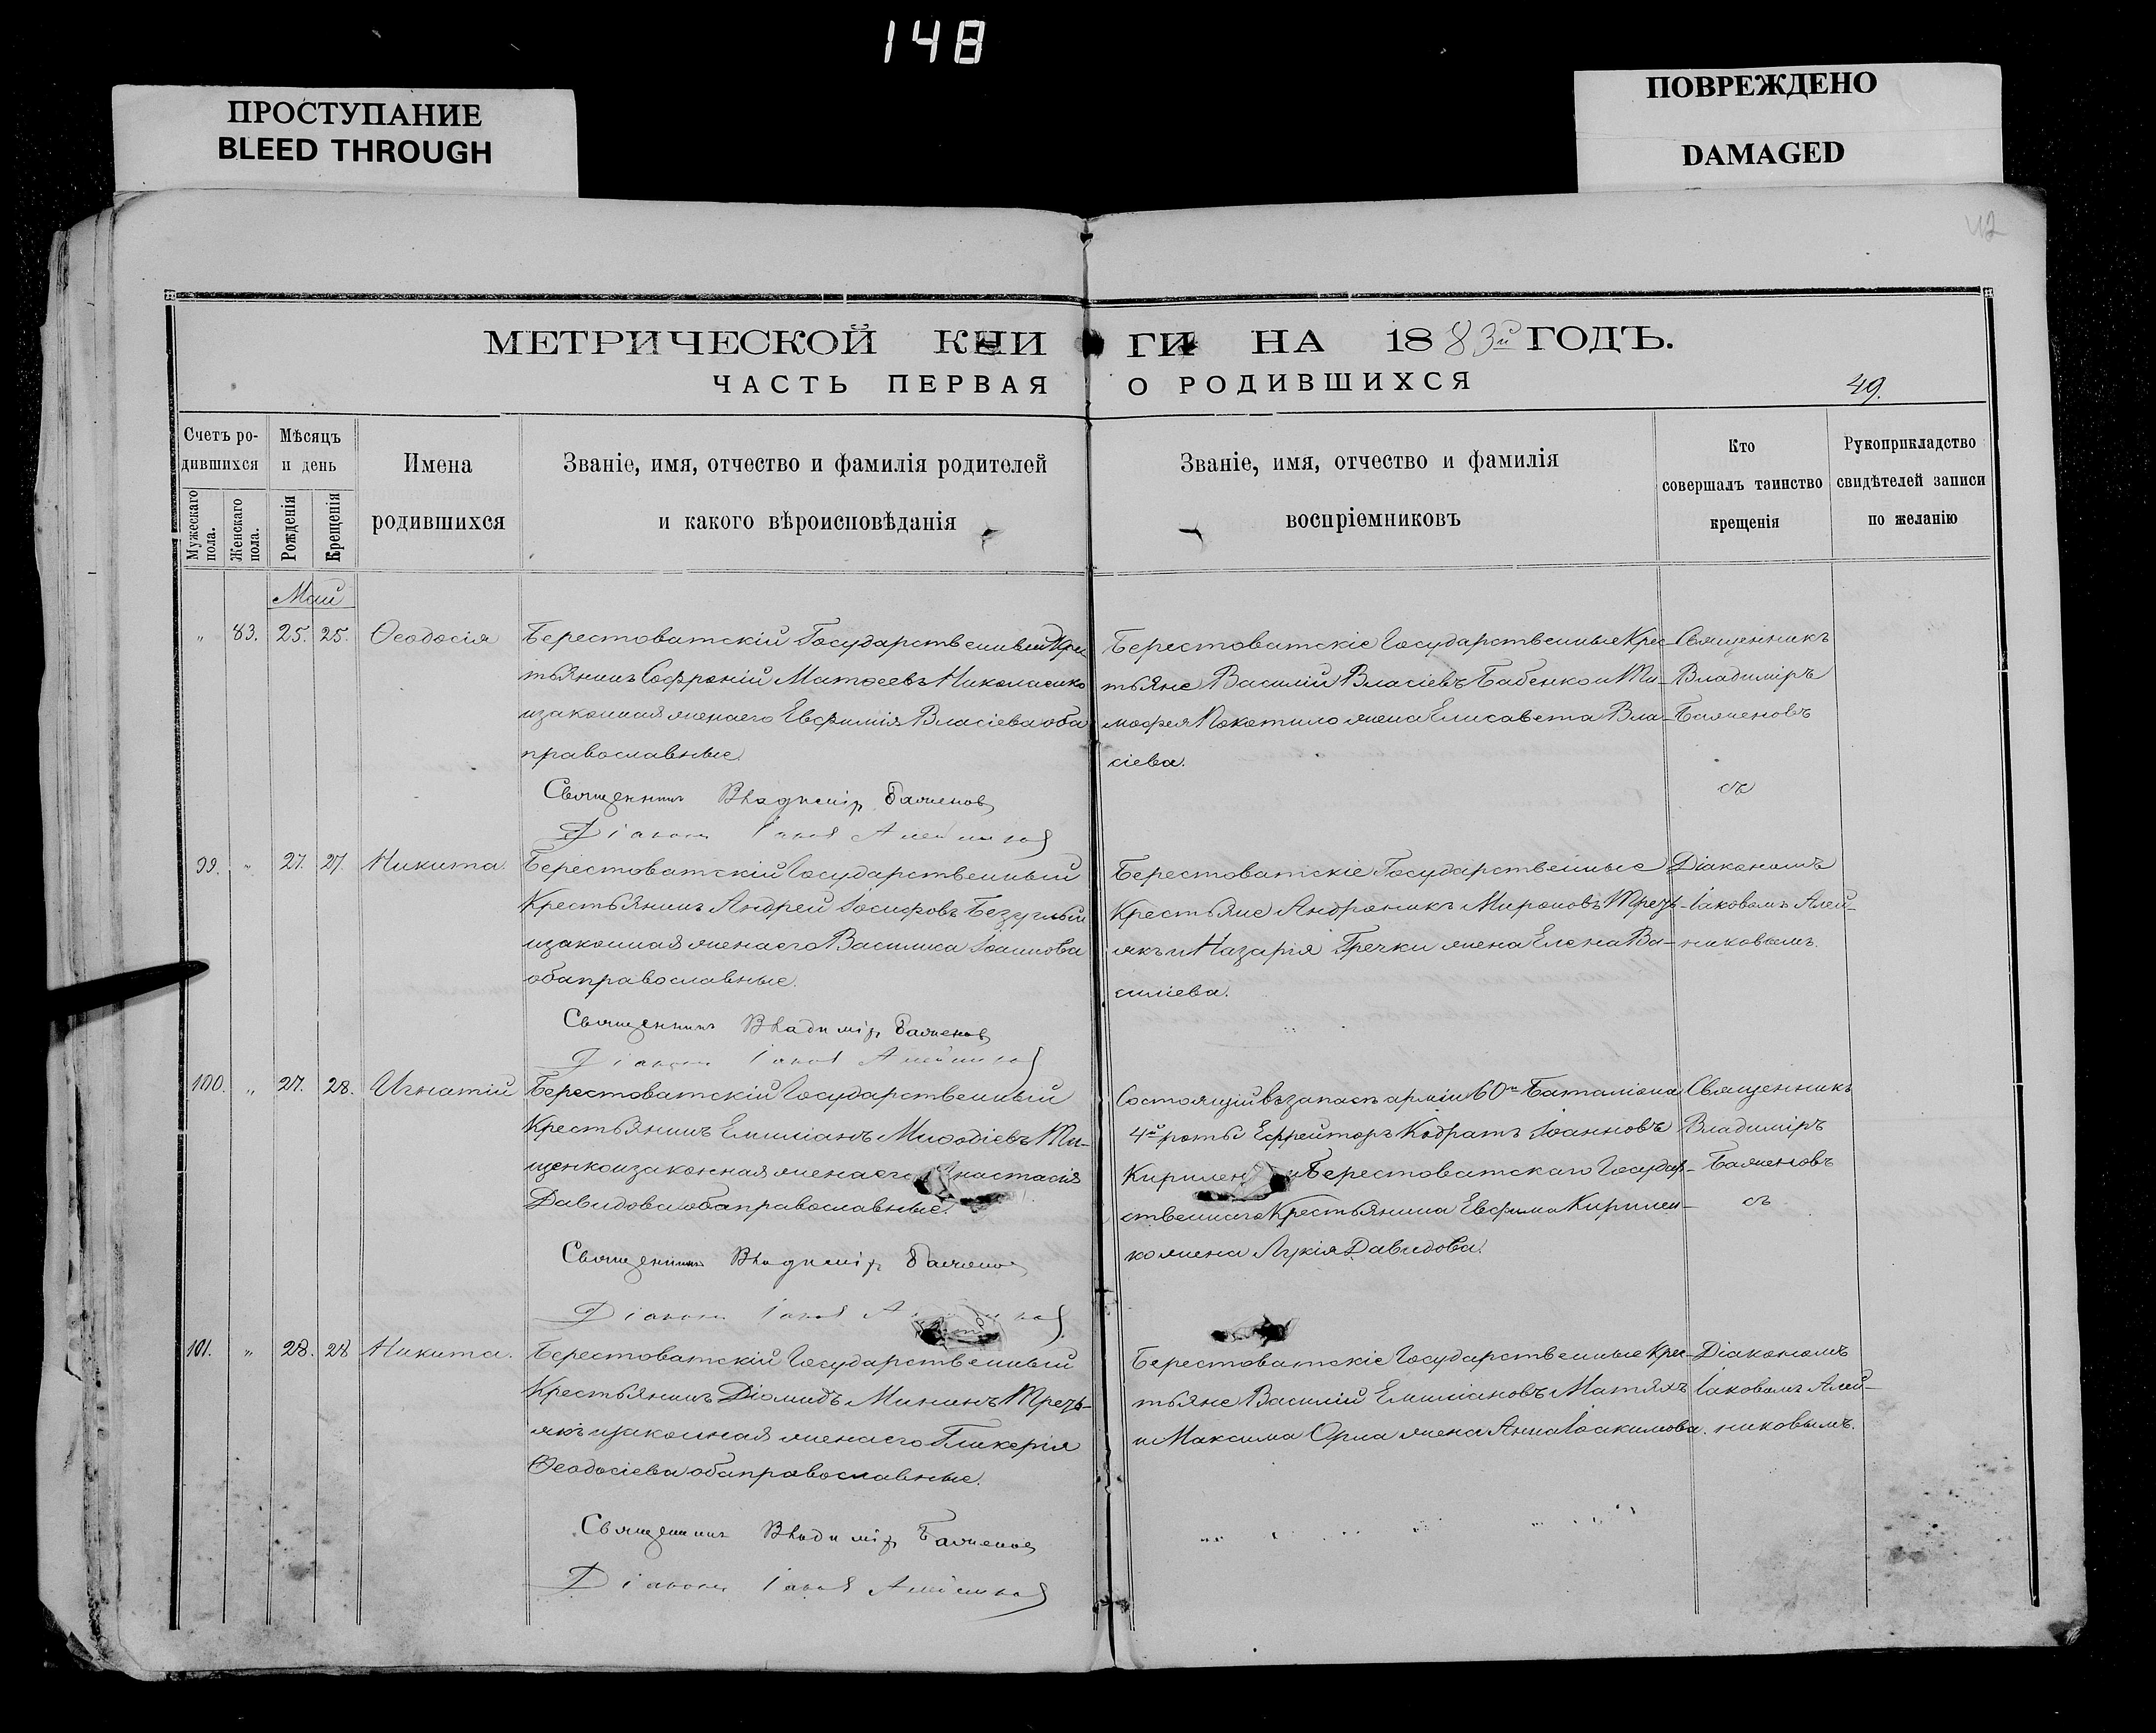 148
ПРОСТУПАНИЕ
BLEED THROUGH
ПОВРЕЖДЕНО
DAMAGED
42
МЕТРИЧЕСКОЙ КНИГИ НА 1883й ГОДЪ.
ЧАСТЬ ПЕРВАЯ О РОДИВШИХСЯ
49.
Счетъ ро-
дившихся
Мужескаго пола.
Женскаго пола.
Мѣсяцъ
и день
Рожденія
Крещенія
Имена
родившихся
Званіе, имя, отчество и фамилія родителей
и какого вѣроисповѣданія
Званіе, имя, отчество и фамилія
воспріемниковъ
Кто
совершалъ таинство
крещенія
Рукоприкладство
свидѣтелей записи
по желанію
Май
" 83. 25. 25. Ѳеодосія
Берестоватскій Государственный Крес
тьянинъ Софроній Матѳеевъ Николаенко
и законная жена его Евфимія Власіева оба
православные.
Священникъ Владиміръ
Діаконъ Іаковъ Алейниковъ
Берестоватскіе Государственные Крес-
тьяне Василій Власіевъ Бабенко и Ти-
мофея Покотило жена Елисавета Вла-
сіева.
Священникъ
Владиміръ
съ
99. " 27. 27. Никита.
Берестоватскій Государственный
Крестьянинъ Андрей Іосифовъ Безуглый
и законная жена его Василиса Іоаннова
оба православные.
Священникъ Владиміръ
Діаконъ Іаковъ Алейниковъ
Берестоватскіе Государственные
Крестьяне Андроникъ Мироновъ Треть-
якъ и Назарія Гречки жена Елена Ва-
силіева.
Діакономъ
Іаковомъ Алей-
никовымъ.
100. " 27. 28. Игнатій
Берестоватскій Государственный
Крестьянинъ Емиліанъ Меѳодіевъ Ти-
щенко и законная жена его Анастасія
Давидова оба православные.
Священникъ Владиміръ
Діаконъ Іаковъ
Состоящій въ запасѣ арміи 60го Баталіона
4й роты Ефрейторъ Кодратъ Іоанновъ
Кирилен и Берестоватскаго Государ-
ственнаго Крестьянина Евфима Кирилен-
ко жена Лукія Давидова.
Священникъ
Владиміръ
съ
101. " 28. 28 Никита.
Берестоватскій Государственный
Крестьянинъ Діомидъ Мининъ Треть-
якъ и законная жена его Гликерія
Ѳеодосіева оба православные.
Священникъ Владиміръ
Діаконъ Іаковъ Алейниковъ
Берестоватскіе Государственные Крес-
тьяне Василій Емиліановъ Матяхъ
и Максима Орла жена Анна Іоакимова.
Діакономъ
Іаковомъ Алей-
никовымъ.